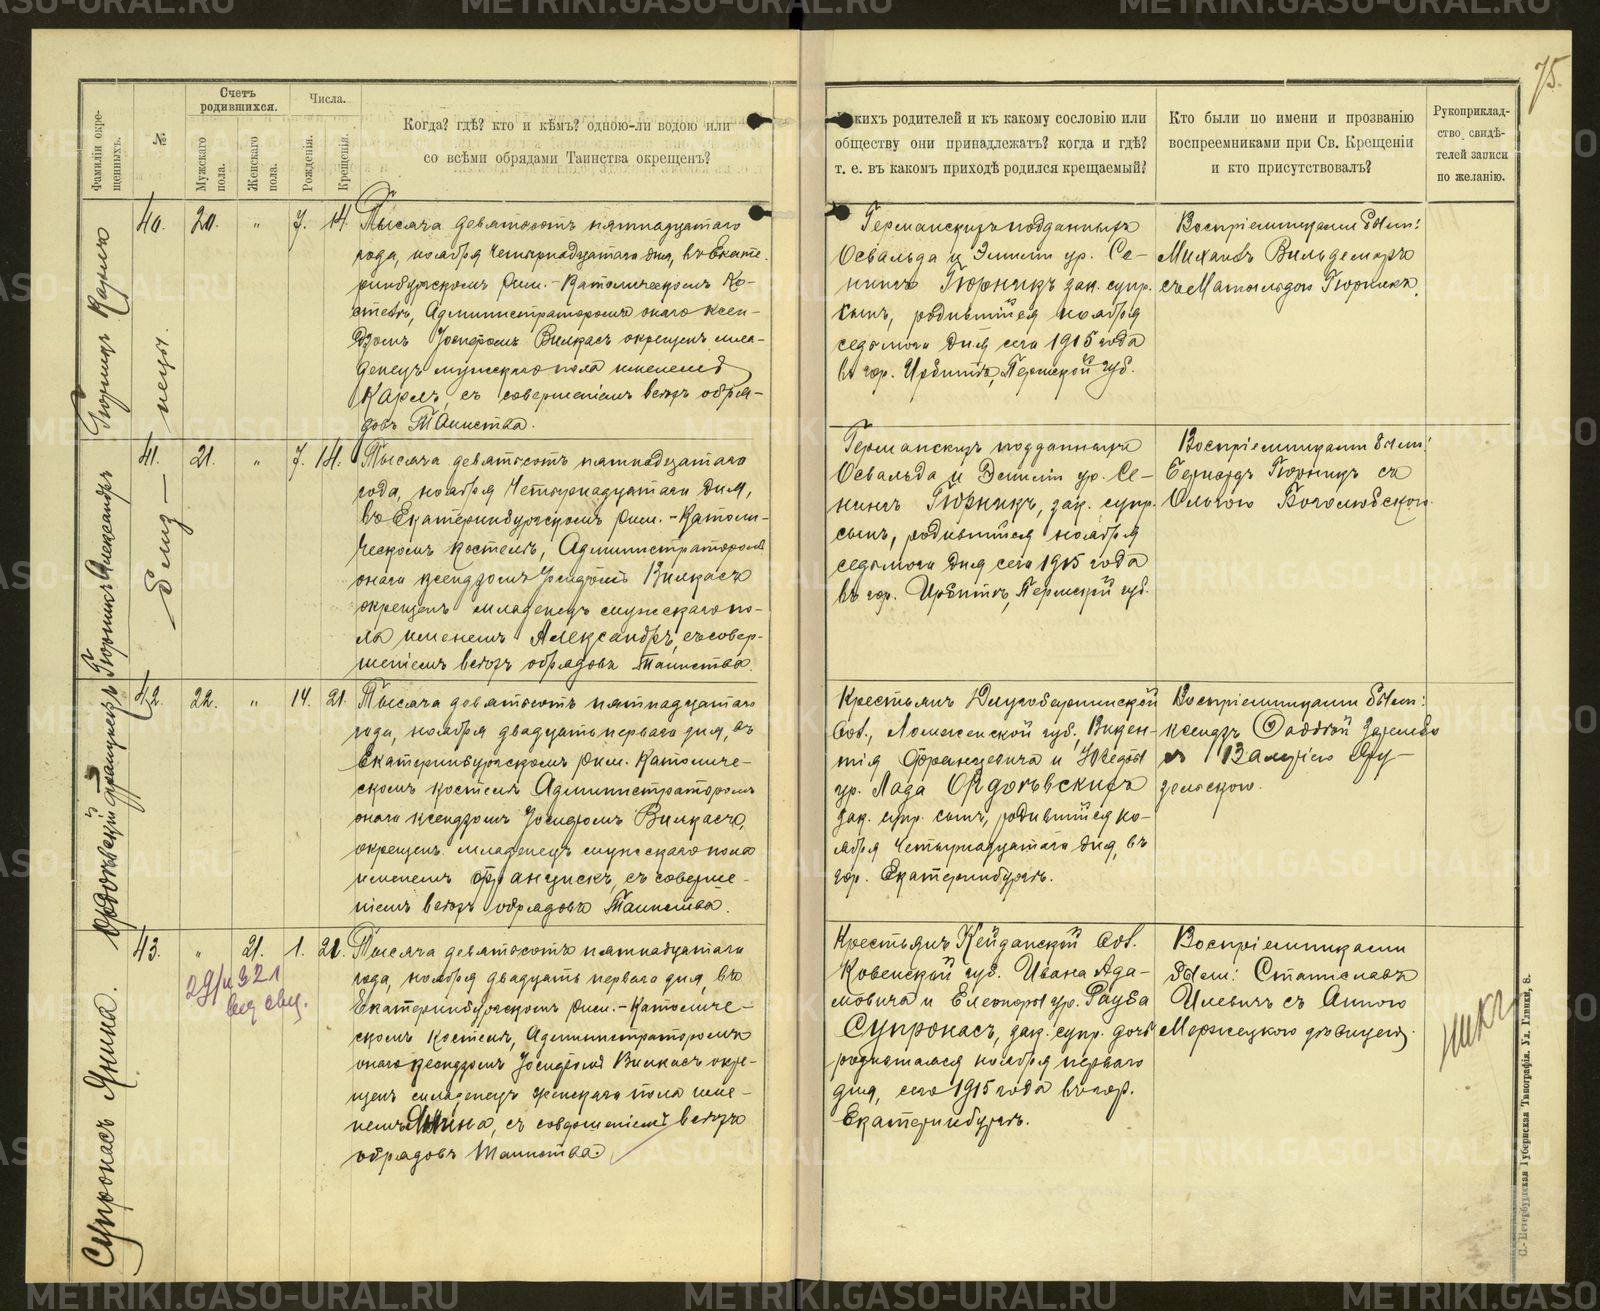 75.
Фамиліи окре-
щенныхъ.
№
Счетъ
родившихся.
Мужскаго
пола.
Женскаго
пола.
Числа.
Рожденія.
Крещенія.
Когда? гдѣ? кто и кѣмъ? одною-ли водою или
со всѣми обрядами Таинства окрещенъ?
Какихъ родителей и къ какому сословію или
обществу они принадлежатъ? когда и гдѣ?
т. е. въ какомъ приходѣ родился крещаемый?
Кто были по имени и прозванію
воспреемниками при Св. Крещеніи
и кто присутствовалъ?
Рукоприклад-
ство свидѣ-
телей записи
по желанію.
40. 20. „ 7. 14.
Тысяча девятьсотъ пятнадцатаго
года, ноября четырнадцатаго дня, въ Екате-
ринбургскомъ Рим.-Католическомъ Ко-
стелѣ, Администраторомъ онаго Ксен-
дзомъ Іосифомъ Вилкасъ окрещенъ мла-
денецъ мужскаго пола именемъ
Карлъ, съ совершеніемъ всѣхъ обря-
довъ Таинства.
Германскихъ подданныхъ
Освальда и Эмиліи ур. Се-
нингъ Гюрникъ зак. супр.
сынъ, родившійся ноября
седьмого дня сего 1915 года
въ гор. Ирбитѣ, Пермской губ.
Воспріемниками были:
Михаилъ Вильдемаръ
съ Матильдою Гюрникъ.
близнецы
41. 21. „ 7. 14.
Тысяча девятьсотъ пятнадцатаго
года, ноября четырнадцатаго дня,
въ Екатеринбургскомъ Рим.-Католи-
ческомъ костелѣ, Администраторомъ
онаго ксендзомъ Іосифомъ Вилкасъ
окрещенъ младенецъ мужскаго по-
ла именемъ Александръ, съ совер-
шеніемъ всѣхъ обрядовъ Таинства.
Германскихъ подданныхъ
Освальда и Эмиліи ур. Се-
нингъ Гюрникъ, зак. супр.
сынъ, родившійся ноября
седьмого дня сего 1915 года
въ гор. Ирбитѣ, Пермской губ.
Воспріемниками были:
Бернардъ Гюрникъ съ
Ольгою Боголюбскою.
42. 22. „ 14. 21.
Тысяча девятьсотъ пятнадцатаго
года, ноября двадцать перваго дня, въ
Екатеринбургскомъ Рим. Католиче-
скомъ костелѣ Администраторомъ
онаго ксендзомъ Іосифомъ Вилкасъ,
окрещенъ младенецъ мужскаго пола
именемъ Францискъ, съ соверше-
ніемъ всѣхъ обрядовъ Таинства.
Крестьянъ
вол., Ломжинской губ., Викен-
тія Францевича и
ур. Лада
зак. супр. сынъ, родившійся но-
ября четырнадцатаго дня, въ
гор. Екатеринбургѣ.
Воспріемниками были:
ксендзъ
съ Валеріею
43. „ 21. 1. 21.
Тысяча девятьсотъ пятнадцатаго
года, ноября двадцать перваго дня, въ
Екатеринбургскомъ Рим.-Католиче-
скомъ костелѣ, Администраторомъ
онаго ксендзомъ Іосифомъ Вилкасъ окре-
щенъ младенецъ женскаго пола име-
немъ Янина, съ совершеніемъ всѣхъ
обрядовъ Таинства.
Крестьянъ Кейданской вол.
Ковенской губ. Ивана Ада-
мовича и Елеоноры ур. Рауба
Супронасъ, зак. супр. дочь
родившаяся ноября перваго
дня, сего 1915 года въ гор.
Екатеринбургѣ.
Воспріемниками
были: Станиславъ
Илевичъ съ Анною
Супронасъ Янина.
С.-Петербургская Губернская Типографія. Ул. Глинки, 8.
METRIKI.GASO-URAL.RU